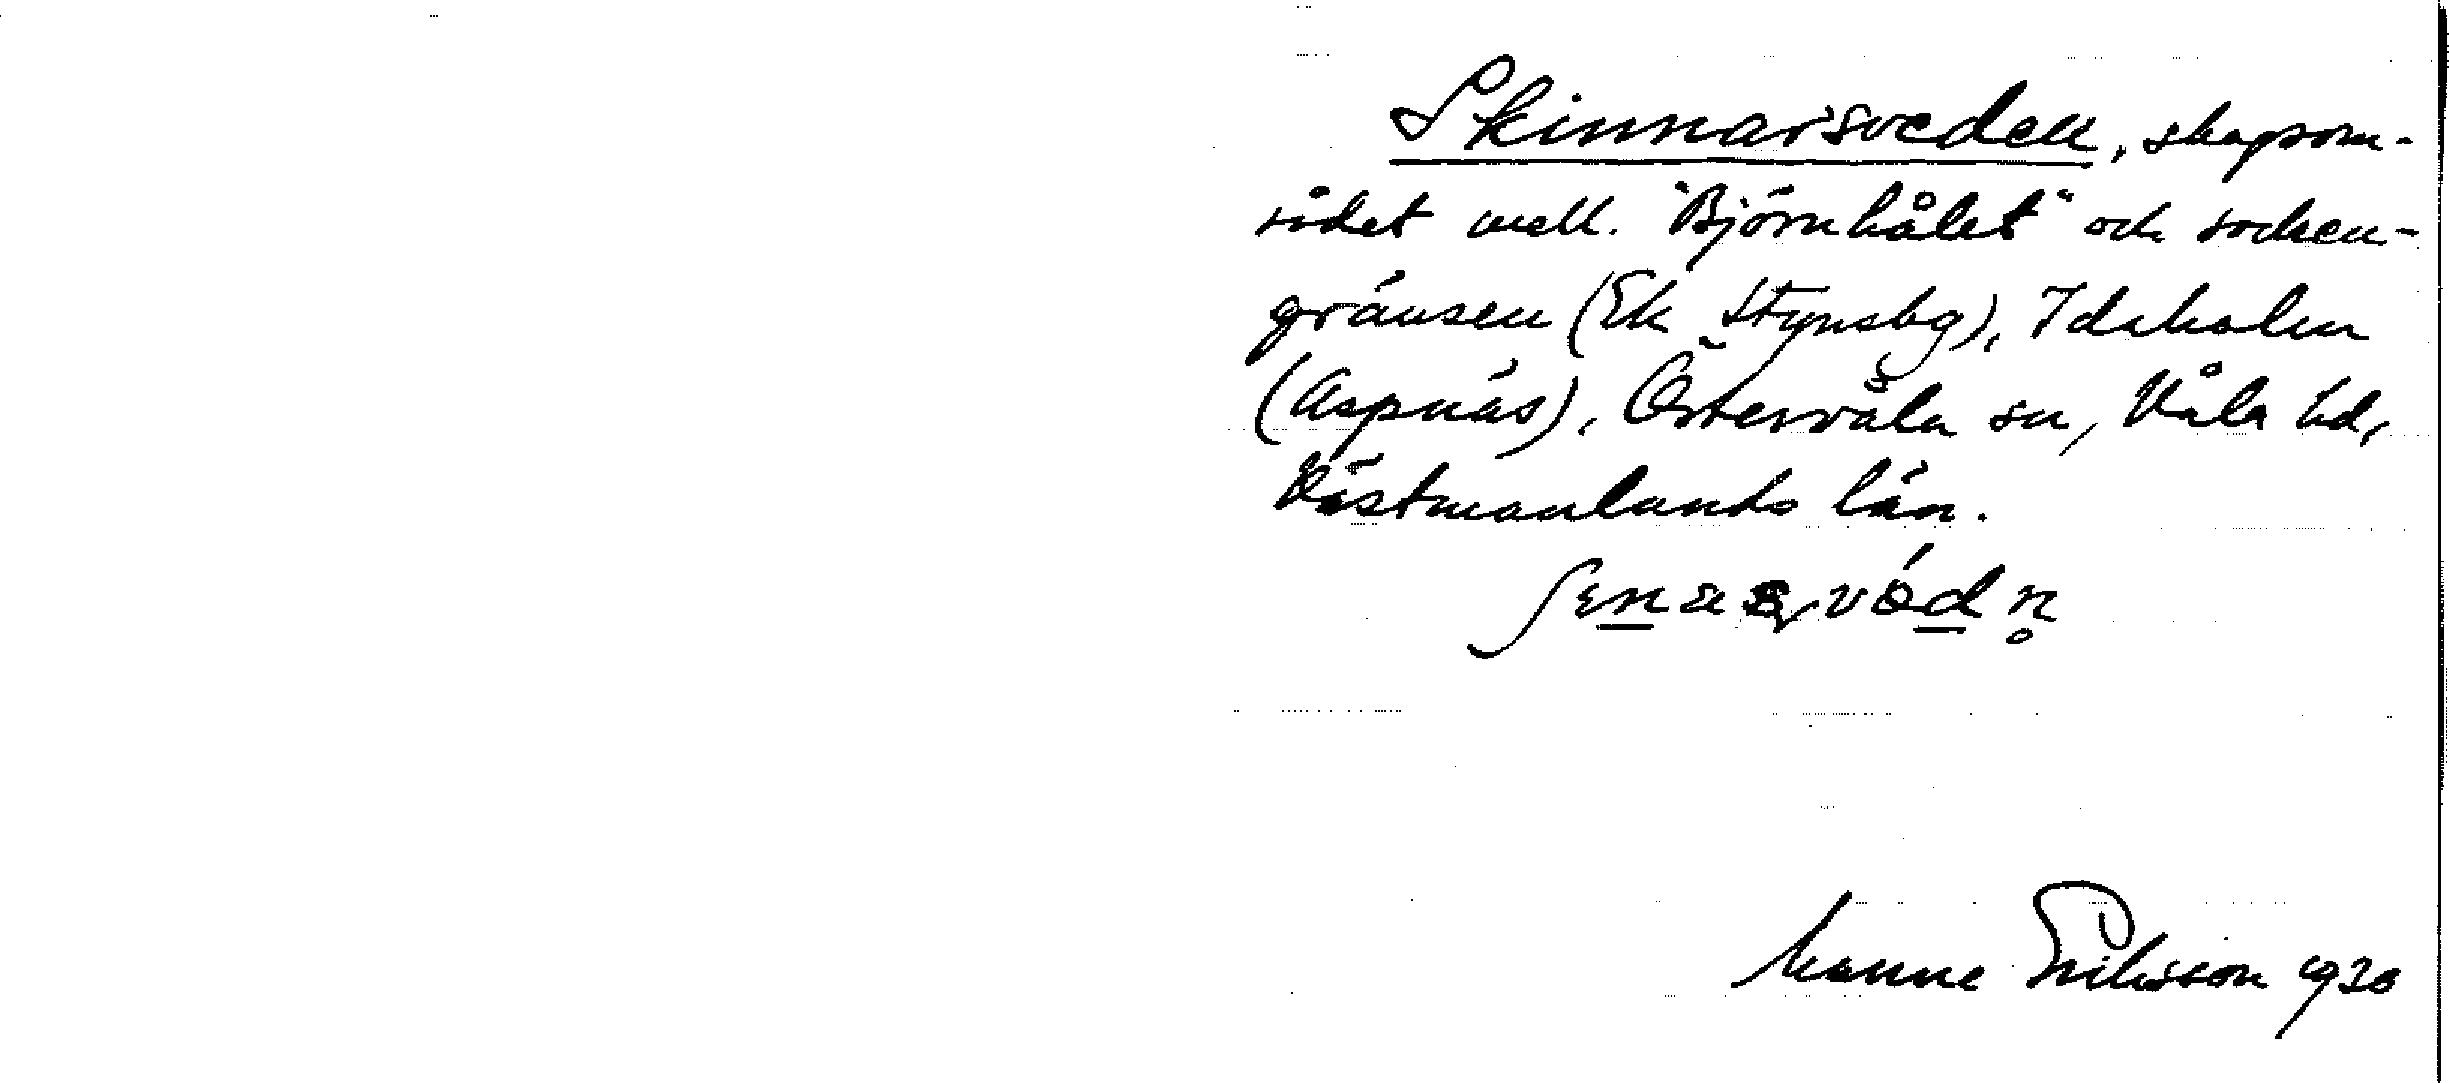 Skinnarsveden, skogsom-
rådet mell. "Björnhålet" och socken-
gränsen (Ek Stynsbg), Idrholen
(Aspnäs), Östervåla sn, Våla hd,
Västmanlands län.
Manne Eriksson 1930